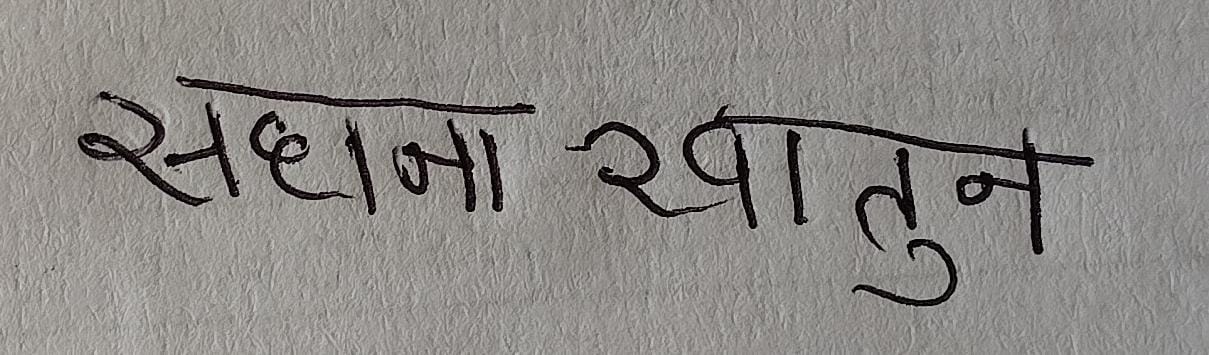 सहाना खातुन